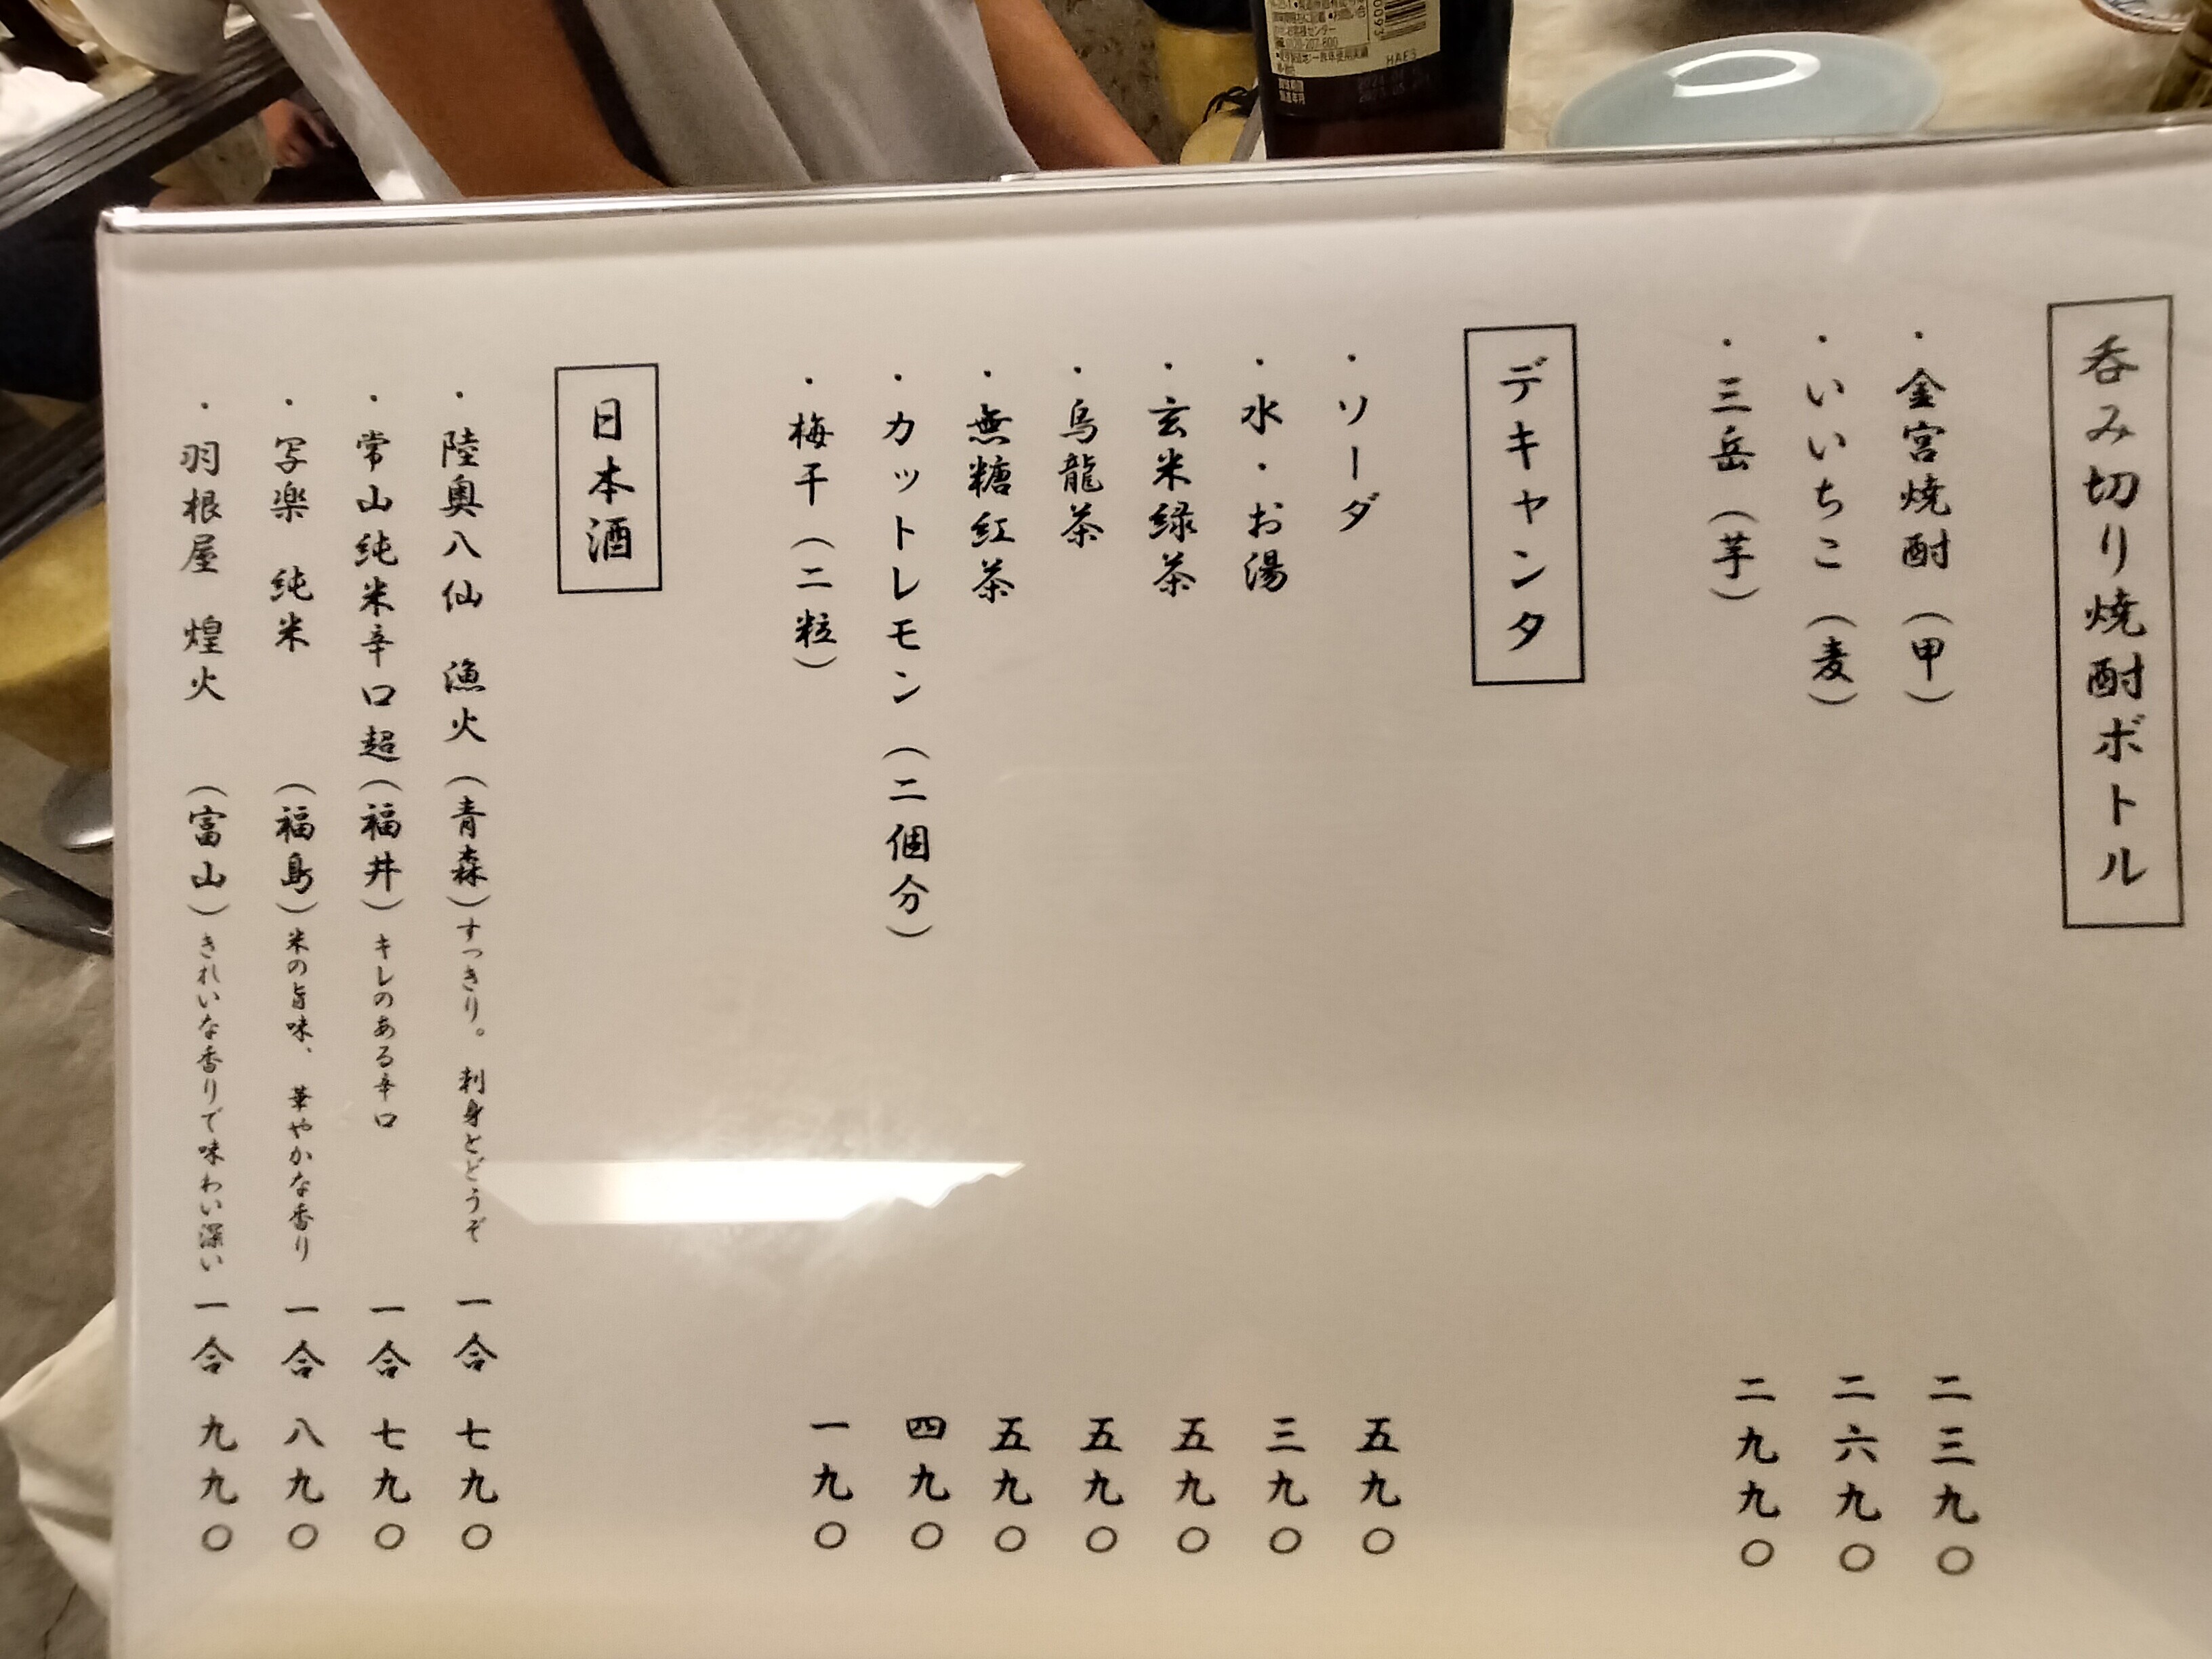 呑み切り焼酎ボトル
・金宮焼酎（甲） 二三九〇
・いいちこ（麦） 二六九〇
・三岳（芋） 二九九〇
デキャンタ
・ソーダ 五九〇
・水・お湯 三九〇
・玄米緑茶 五九〇
・烏龍茶 五九〇
・無糖紅茶 五九〇
・カットレモン（二個分） 四九〇
・梅干（二粒） 一九〇
日本酒
・陸奥八仙 漁火（青森）すっきり。刺身とどうぞ 一合 七九〇
・常山純米辛口超（福井）キレのある辛口 一合 七九〇
・写楽 純米（福島）米の旨味、華やかな香り 一合 八九〇
・羽根屋 煌火（富山）きれいな香りで味わい深い 一合 九九〇
HAE3